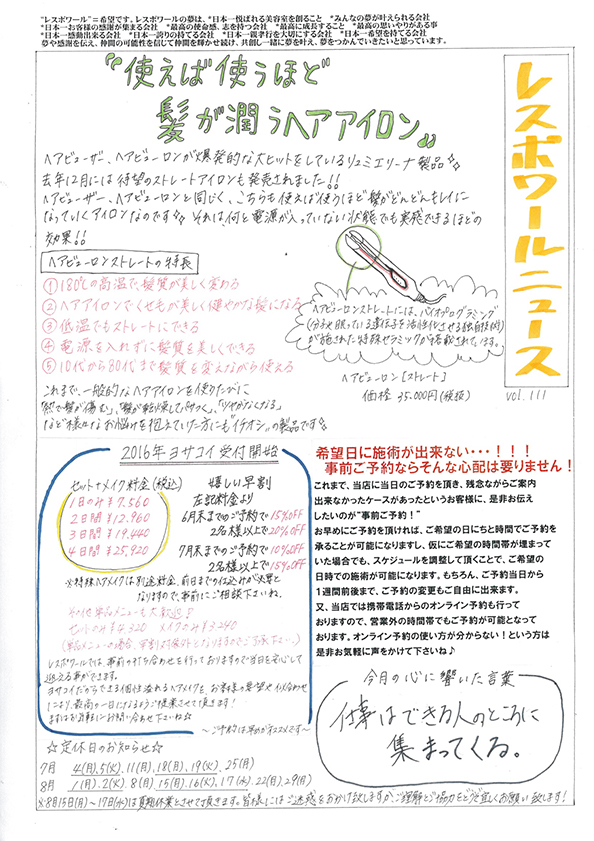 "レスポワール"＝希望です。レスポワールの夢は、*日本一悦ばれる美容室を創ること　*みんなの夢が叶えられる会社
*日本一お客様の感謝が集まる会社　*最高の使命感、志を持つ会社　*最高に成長すること　*最高の思いやりがある事
*日本一感動出来る会社　*日本一誇りの持てる会社　*日本一親孝行を大切にする会社　*日本一希望を持てる会社
夢や感謝を伝え、仲間の可能性を信じて仲間を輝かせ続け、共創し一緒に夢を叶え、夢をつかんでいきたいと思っています。
『使えば使うほど
髪が潤うヘアアイロン』
レスポワールニュース
vol.111
ヘアビューザー、ヘアビューロンが爆発的な大ヒットをしているリュミエリーナ製品☆
去年12月には待望のストレートアイロンも発売されました!!
ヘアビューザー、ヘアビューロンと同じく、こちらも使えば使うほど髪がどんどんキレイに
なっていくアイロンなのです☆ それは、何と電源が入っていない状態でも実感できるほどの
効果!!
ヘアビューロンストレートの特長
①180℃の高温で、髪質が美しく変わる
②ヘアアイロンでくせ毛が美しく健やかな髪になる
③低温でもストレートにできる
④電源を入れずに髪質を美しくできる
⑤10代から80代まで髪質を変えながら使える
ヘアビューロンストレートには、バイオプログラミング
(分子や眠っている遺伝子を活性化させる独自技術)
が施された特殊セラミックが搭載されています。
ヘアビューロン[ストレート]
価格 35,000円(税抜)
これまで、一般的なヘアアイロンを使うたびに
「熱で髪が傷む」、「髪が乾燥してパサつく」、「ツヤがなくなる」
など様々なお悩みを抱えていた方にもイチオシの製品です☆
2016年ヨサコイ受付開始
セット+メイク料金(税込)
1日のみ ¥7,560
2日間 ¥12,960
3日間 ¥19,440
4日間 ¥25,920
嬉しい早割
左記料金より
6月末までのご予約で15%OFF
2名様以上で20%OFF
7月末までのご予約で10%OFF
2名様以上で15%OFF
※特殊ヘアメイクは別途料金、前日までの仕込みが必要と
なりますので、事前にご相談下さいね。
その他単品メニューも大歓迎!
セットのみ¥4,320 メイクのみ¥3,240
(単品メニューの場合、早割対象外となりますのでご了承下さい。)
レスポワールでは、事前の打ち合わせを行っておりますので当日を安心して
迎える事ができます。
ヨサコイだからできる個性溢れるヘアメイクを、お客様の要望や似合わせ
により、最高の一日になるようご提案させて頂きます!
まずはお気軽にお問い合わせ下さいね☆
～ご予約は早めがオススメです～
希望日に施術が出来ない・・・！！！
事前ご予約ならそんな心配は要りません！
これまで、当店に当日のご予約を頂き、残念ながらご案内
出来なかったケースがあったというお客様に、是非お伝え
したいのが"事前ご予約！"
お早めにご予約を頂ければ、ご希望の日にちと時間でご予約を
承ることが可能になりますし、仮にご希望の時間帯が埋まって
いた場合でも、スケジュールを調整して頂くことで、ご希望の
日時での施術が可能になります。もちろん、ご予約当日から
1週間前後まで、ご予約の変更もご自由に出来ます。
又、当店では携帯電話からのオンライン予約も行って
おりますので、営業外の時間帯でもご予約が可能となって
おります。オンライン予約の使い方が分からない！という方は
是非お気軽に声をかけて下さいね♪
今月の心に響いた言葉
仕事はできる人のところに
集まってくる。
☆定休日のお知らせ☆
7月 4(月).5(火).11(月).18(月).19(火).25(月)
8月 1(月).2(火).8(月)15(月).16(火).17(水).22(月).29(月)
※8月15日(月)～17日(水)は夏期休業とさせて頂きます。皆様にはご迷惑をおかけ致しますが、ご理解とご協力をどうぞ宜しくお願い致します!